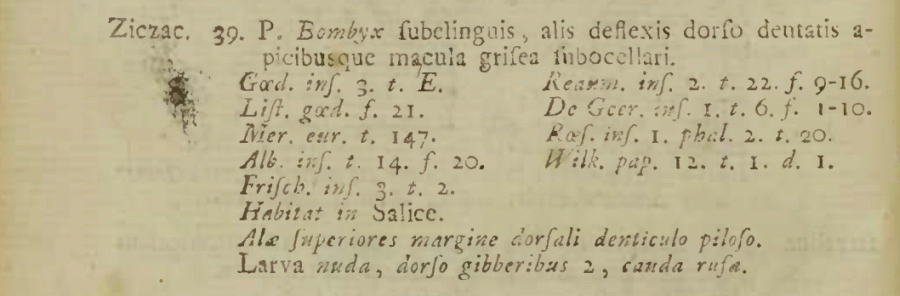 Ziczac. 39. P. Bombyx ſubelinguis, alis deflexis dorſo dentatis a-
picibusque macula griſea ſubocellari.
Gœd. inſ. 3. t. E. Reaum. inſ. 2. t. 22. f. 9-16.
Liſt. gœd. f. 21. De Geer. inſ. 1. t. 6. f. 1-10.
Mer. eur. t. 147. Rœſ. inſ. 1. phal. 2. t. 20.
Alb. inſ. t. 14. f. 20. Wilk. pap. 12. t. 1. d. 1.
Friſch. inſ. 3. t. 2.
Habitat in Salice.
Alæ ſuperiores margine dorſali denticulo piloſo.
Larva nuda, dorſo gibberibus 2, cauda rufa.